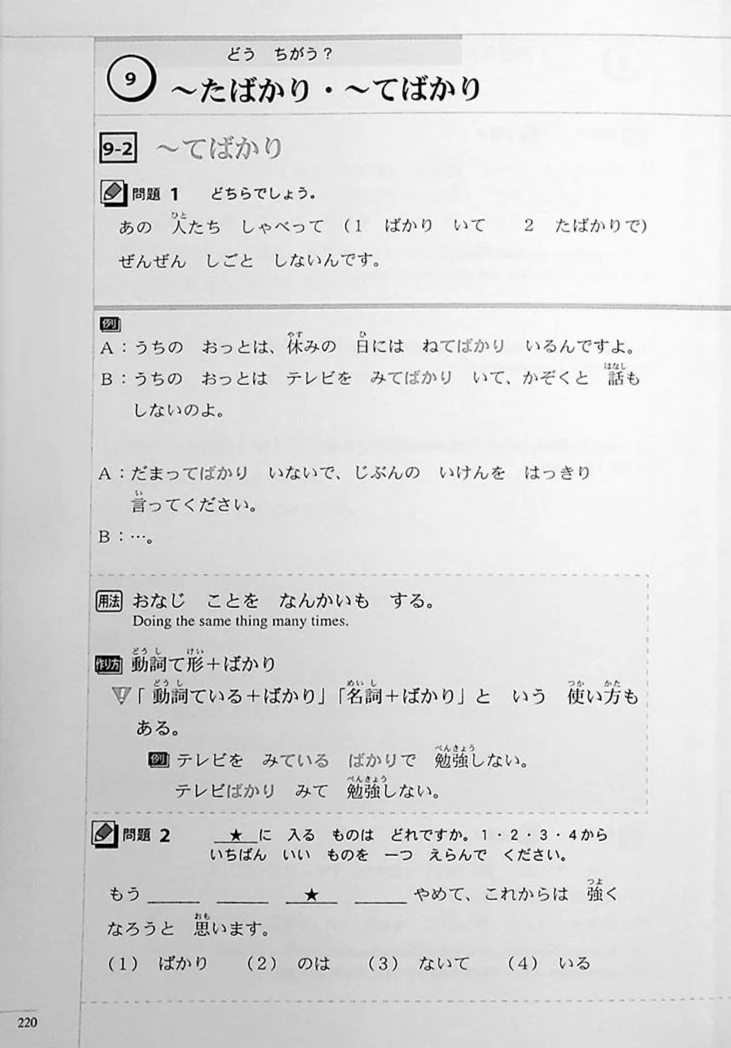 どう ちがう？
9 ～たばかり・～てばかり
9-2 ～てばかり
問題 1 どちらでしょう。
ひと
あの 人たち しゃべって （1 ばかり いて 2 たばかりで）
ぜんぜん しごと しないんです。
例
やす ひ
A：うちの おっとは、休みの 日には ねてばかり いるんですよ。
はなし
B：うちの おっとは テレビを みてばかり いて、かぞくと 話も
しないのよ。
A：だまってばかり いないで、じぶんの いけんを はっきり
い
言ってください。
B：…。
用法 おなじ ことを なんかいも する。
Doing the same thing many times.
どうし けい
作り方 動詞て形＋ばかり
どうし めいし つか かた
！「動詞ている＋ばかり」「名詞＋ばかり」と いう 使い方も
ある。
べんきょう
例 テレビを みている ばかりで 勉強しない。
べんきょう
テレビばかり みて 勉強しない。
問題 2 ★に 入る ものは どれですか。1・2・3・4から
いちばん いい ものを 一つ えらんで ください。
つよ
もう ＿＿＿ ＿＿＿ ★ ＿＿＿ やめて、これからは 強く
おも
なろうと 思います。
（1） ばかり （2） のは （3） ないて （4） いる
220